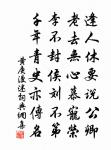 達人休要說公卿
老去無心慕寵榮
李不封侯劉不第
千年青史亦傳名
黃庚漫述詞典網集